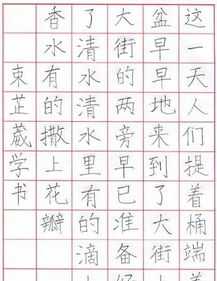 这一天人们提着桶端
盆早早地来到了大街
大街的两旁早已准备
了清水清水里有的滴
香水有的撒上花瓣
束芷葳学书